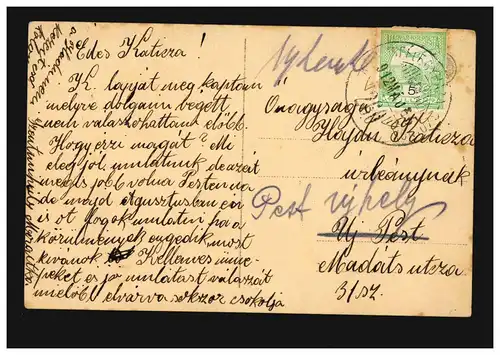 Edes Katicza!
K. lapját meg kaptam
melyre dolgaim végett
nem válaszolhattam előbb.
Hogy érzi magát? Mi
elég jól mulatunk de azért
még is jobb volna Pesten na
de majd Agusztusban én
is ott fogok mulatni ha a
körülmények engedik most
kivánok Kellemes ünne-
peket és jó mulatást válaszát
mielőbb elvárva sokszor csókolja
Őnagysága
Hajdu Katicza
úrleánynak
Pest ujhely
Uj Pest
Madáts utcza
31 sz.
5